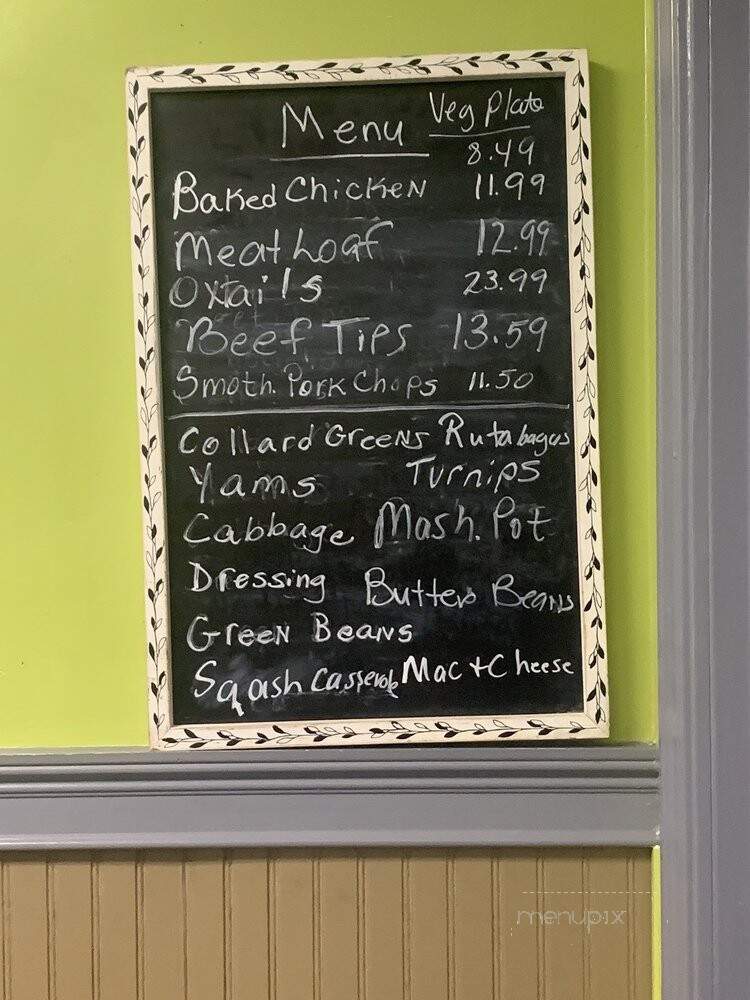 Menu Veg Plate
8.49
Baked Chicken 11.99
Meat Loaf 12.99
Oxtails 23.99
Beef Tips 13.59
Smoth. Pork Chops 11.50
Collard Greens Rutabagas
Yams Turnips
Cabbage Mash. Pot
Dressing Butter Beans
Green Beans
Sqash Casserole Mac + Cheese
menupix